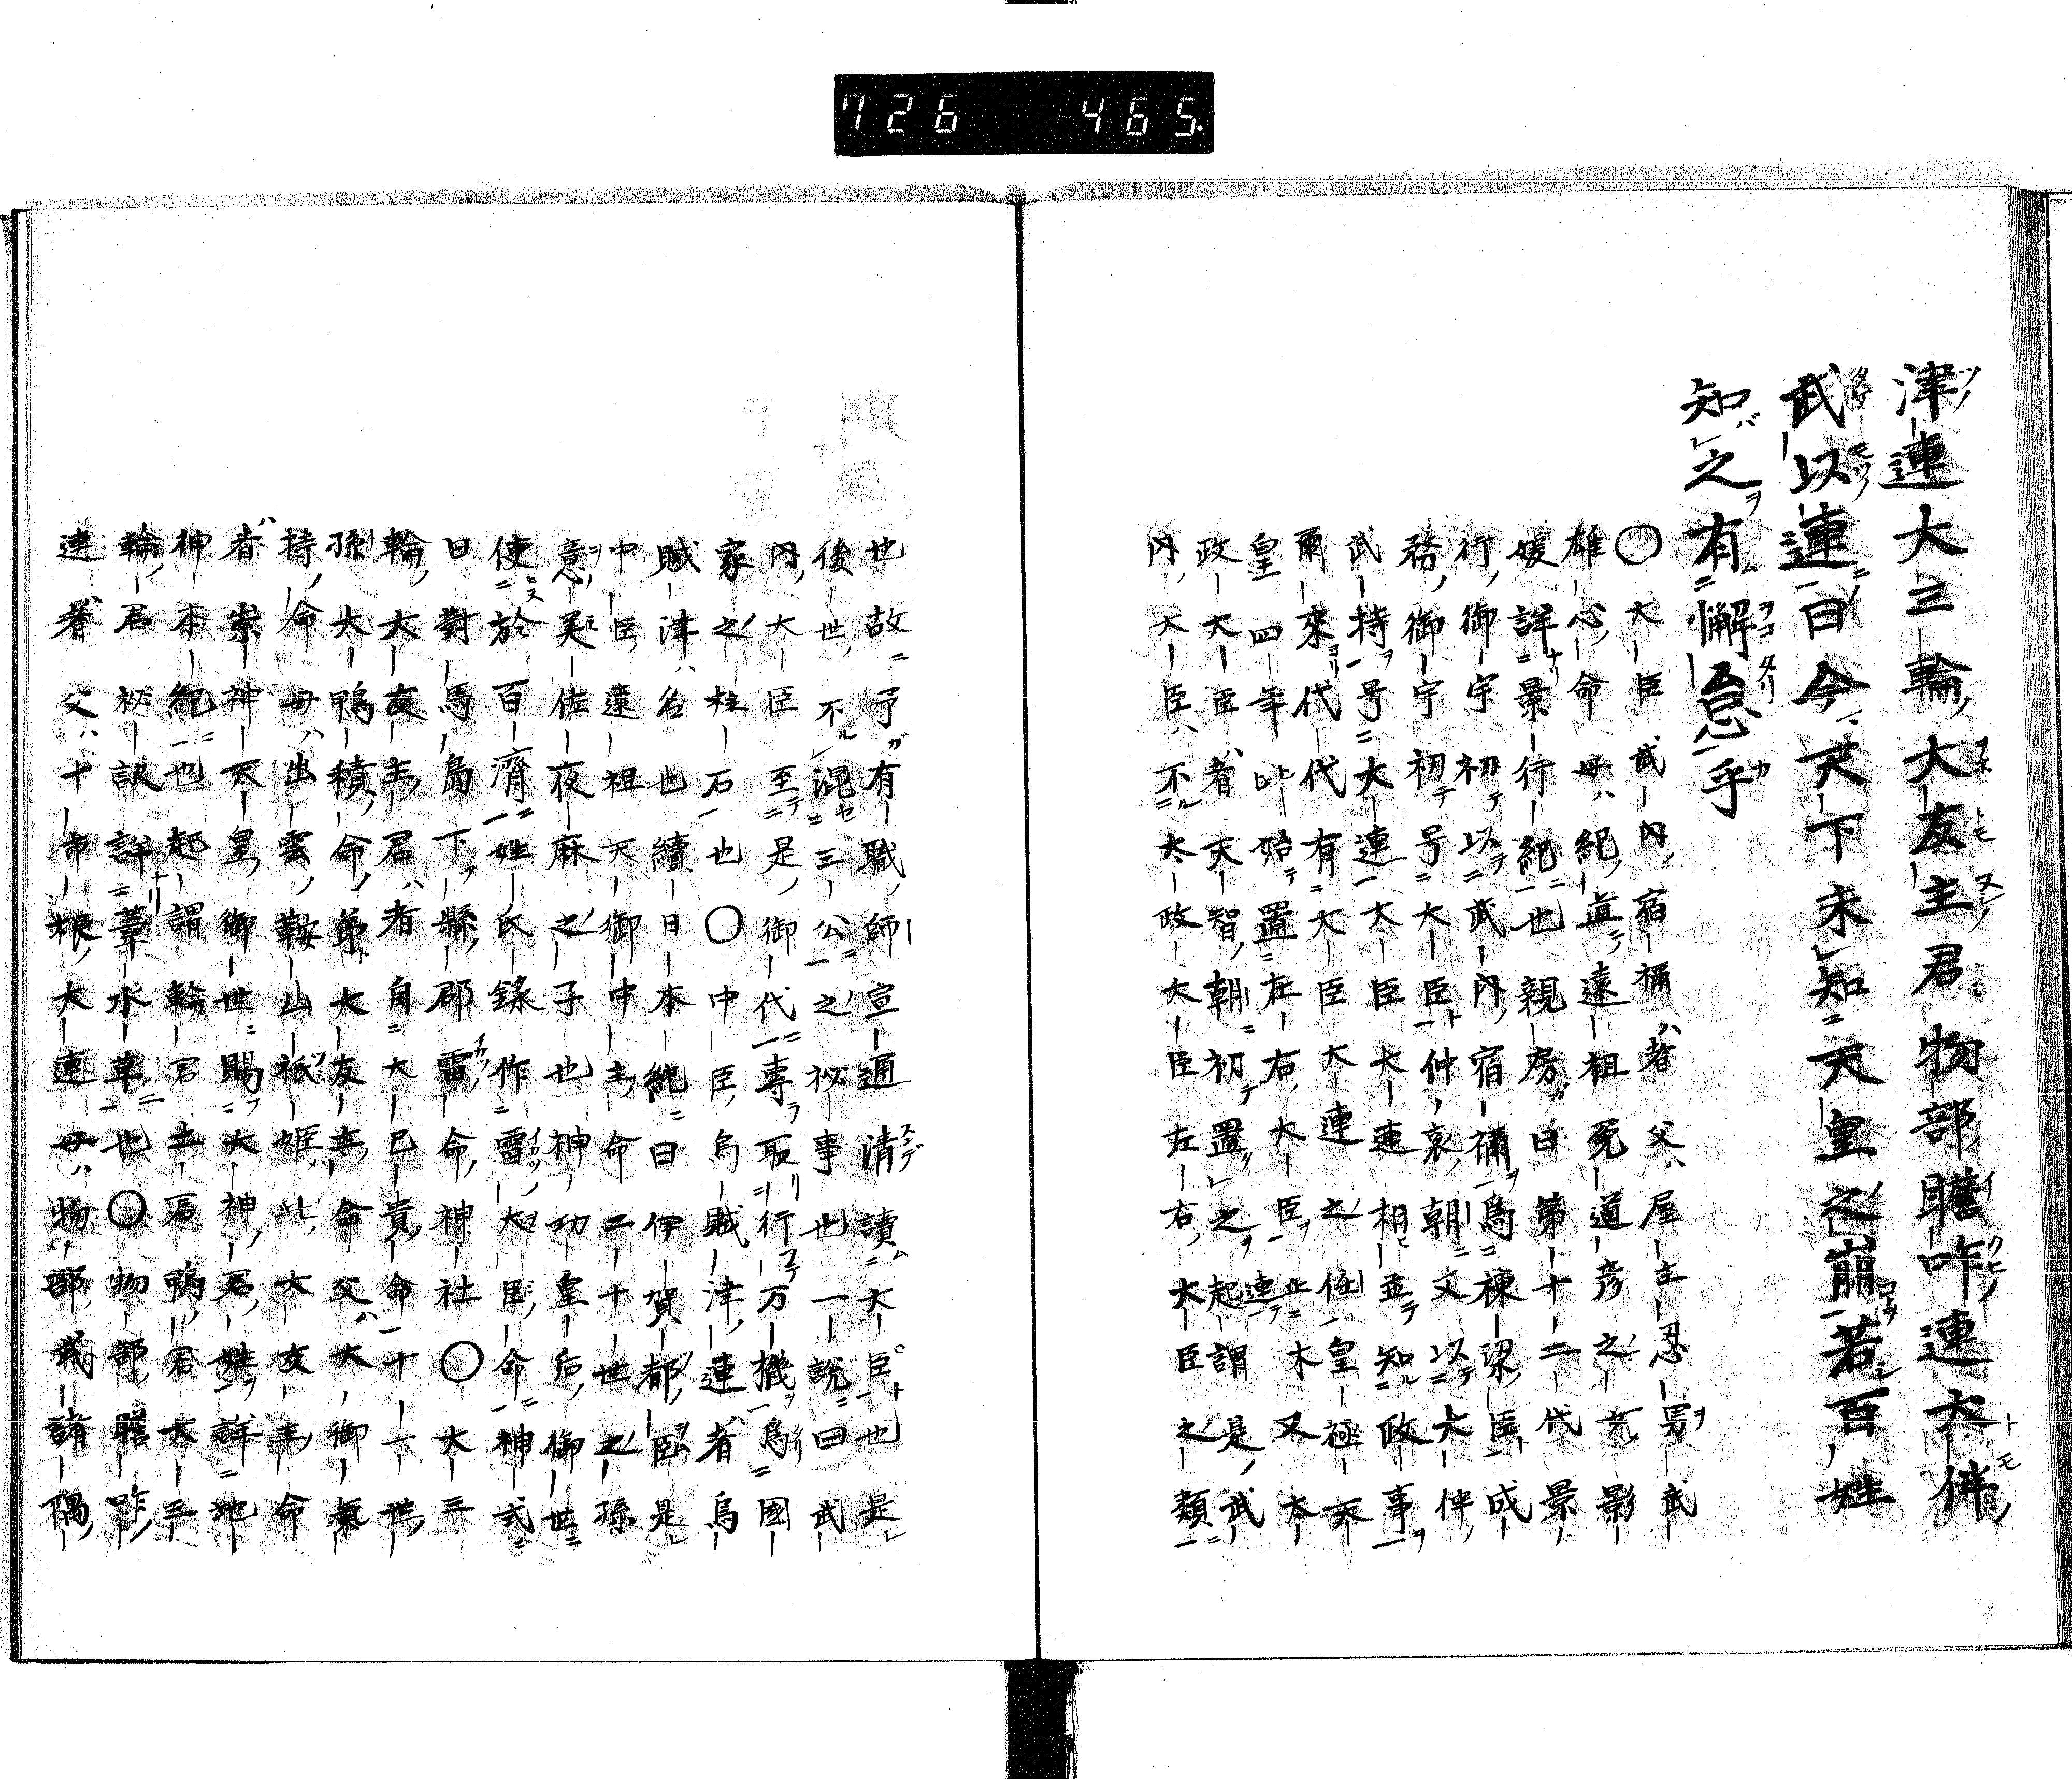 726 465.
津連大三輪大友主君物部膽咋連大伴
武以連曰今天下未知天皇之崩若百姓
知之有懈怠乎
○大臣武內宿禰者父屋主忍男武
雄心命母紀直遠祖菟道彦之女影
媛詳景行紀也親房曰第十二代景
行御宇初以武內宿禰爲棟梁臣成
務御宇初号大臣仲哀朝又以大伴
武持号大連大臣大連相並知政事
爾來代代有大臣大連之任皇極天
皇四年始置左右大臣止大連又太
政大臣者天智朝初置之起謂是武
內大臣不太政大臣左右大臣之類
也故予有職師宣通清讀大臣也是
後世不混三公之秘事也一說曰武
內大臣至是御代專取行万機爲國
家之柱石也○中臣烏賊津連者烏
賊津名也續日本紀曰伊賀都臣是
中臣遠祖天御中主命二十世之孫
意美佐夜麻之子也神功皇后御世
使於百濟姓氏錄作雷大臣命神式
曰對馬島下縣郡雷命神社○大三
輪大友主君者自大己貴命十一世
孫大鴨積命弟大友主命父大御氣
持命母出雲鞍山祇姫此大友主命
者崇神天皇御世賜大神君姓詳地
神本紀也起謂輪君土君鴨君大三
輪君秘訳詳葦水草也○物部膽咋
連者父十市根大連母物部武諸隅